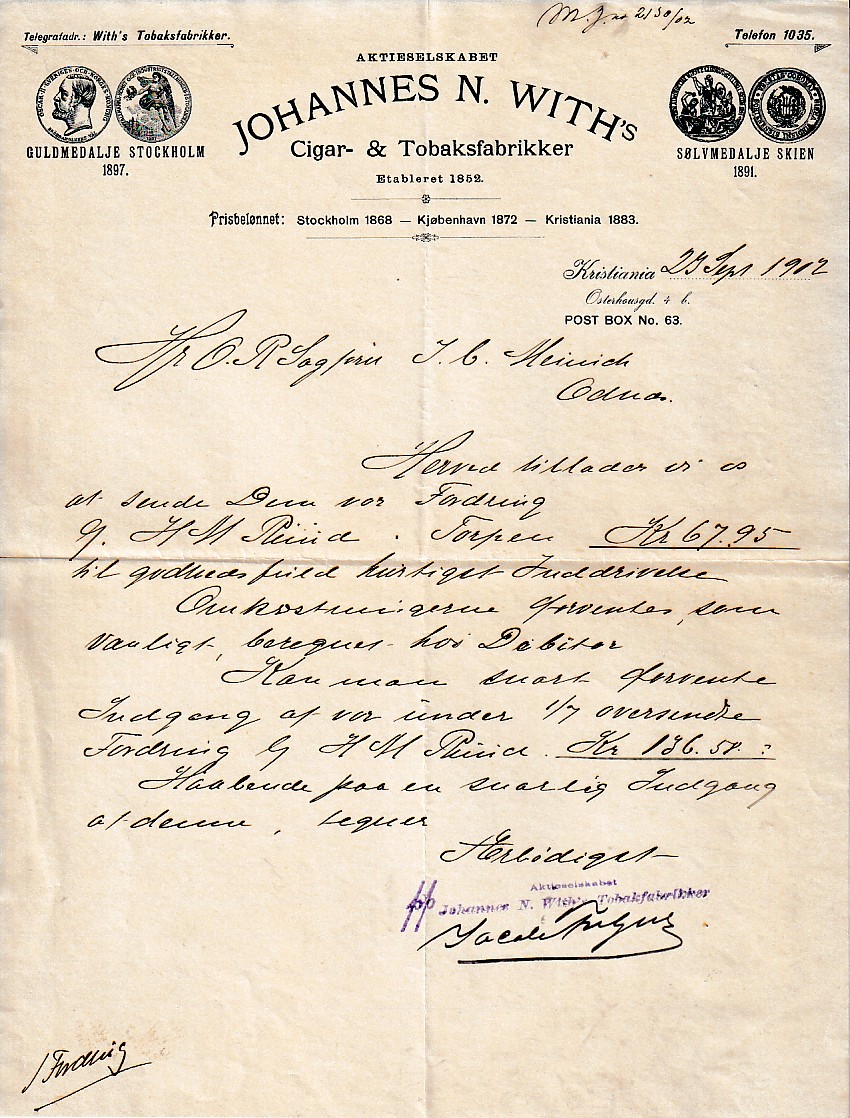 M. J. no 2130/02
Telegrafadr.: With's Tobaksfabrikker.
Telefon 1035.
AKTIESELSKABET
JOHANNES N. WITH's
Cigar- & Tobaksfabrikker
Etableret 1852.
GULDMEDALJE STOCKHOLM
1897.
SØLVMEDALJE SKIEN
1891.
Prisbelønnet: Stockholm 1868 — Kjøbenhavn 1872 — Kristiania 1883.
Kristiania 23 Sept 1902
Osterhousgd. 4 b.
POST BOX No. 63.
Hr O. R Sagfører I. C. Meinich
Odnæs.
Herved tillader vi os
at sende Dem vor Fordring
H M Ruud. Torpen Kr 67.95
til godhedsfuld hurtigst Inddrivelse
Omkostningerne forventes, som
vanligt, beregnet hos Debitor
Kan man snart forvente
Indgang af vor under 1/7 oversendte
Fordring H M Ruud. Kr 136.50.?
Haabende paa en snarlig Indgang
af denne, tegner
Ærbödigst
Aktieselskabet
pp Johannes N. With's Tobakfabrikker
1 Fordring